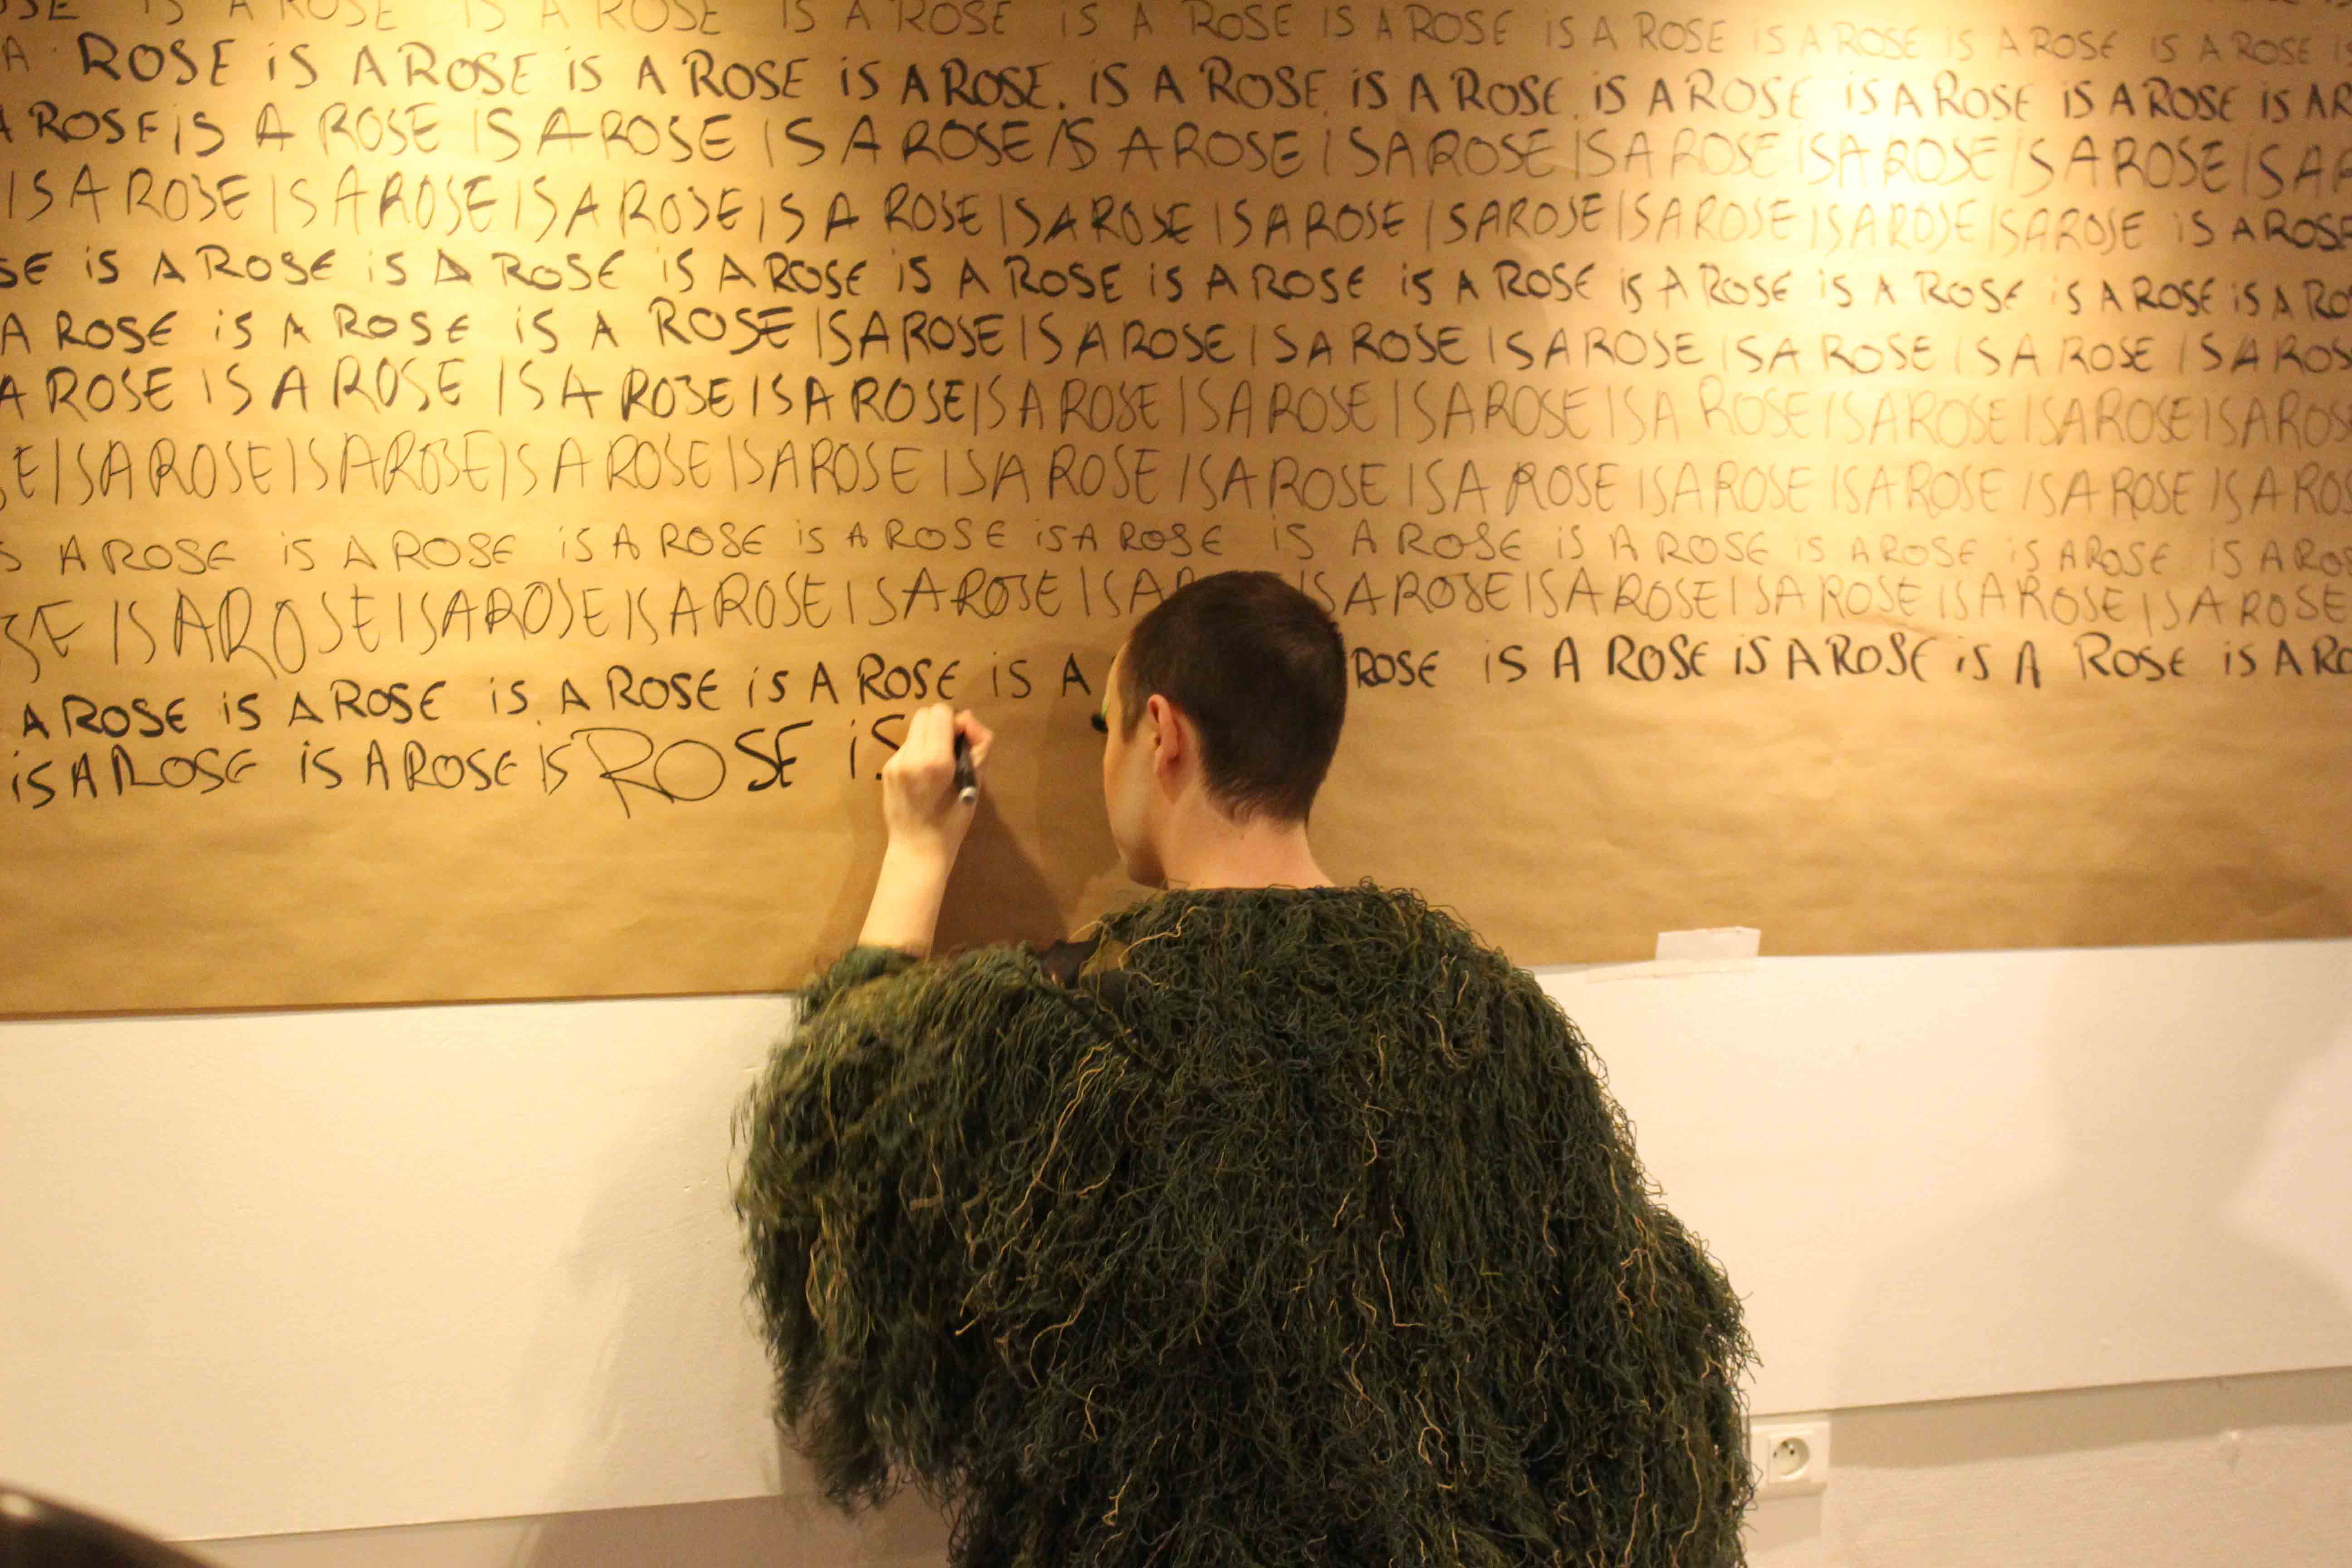 SE IS A ROSE IS A ROSE IS A ROSE IS A ROSE IS A ROSE IS A ROSE IS A ROSE IS A ROSE IS A ROSE IS
A ROSE iS A ROSE iS A ROSE iS A ROSE. iS A ROSE. iS A ROSE. iS A ROSE iS A ROSE iS A ROSE iS AR
A ROSE IS A ROSE IS A ROSE IS A ROSE IS A ROSE IS A ROSE IS A ROSE IS A ROSE IS A ROSE IS A R
IS A ROSE IS A ROSE IS A ROSE IS A ROSE IS A ROSE IS A ROSE IS A ROSE IS A ROSE IS A ROSE IS A ROSE iS A ROSE
SE iS A ROSE iS A ROSE iS A ROSE iS A ROSE iS A ROSE iS A ROSE iS A ROSE iS A ROSE iS A ROSE iS A RO
A ROSE iS A ROSE iS A ROSE IS A ROSE IS A ROSE IS A ROSE IS A ROSE IS A ROSE IS A ROSE IS A ROS
A ROSE IS A ROSE IS A ROSE IS A ROSE IS A ROSE IS A ROSE IS A ROSE IS A ROSE IS A ROSE IS A ROSE IS A ROS
E IS A ROSE IS A ROSE IS A ROSE IS A ROSE IS A ROSE IS A ROSE IS A ROSE IS A ROSE IS A ROSE IS A ROSE IS A ROS
S A ROSE iS A ROSE iS A ROSE iS A ROSE iS A ROSE iS A ROSE iS A ROSE iS A ROSE iS A ROSE iS A ROS
SE IS A ROSE IS A ROSE IS A ROSE IS A ROSE IS A IS A ROSE IS A ROSE IS A ROSE IS A ROSE IS A ROSE
A ROSE iS A ROSE iS A ROSE iS A ROSE iS A ROSE iS A ROSE iS A ROSE iS A ROSE iS A RO
iS A ROSE iS A ROSE iS ROSE iS